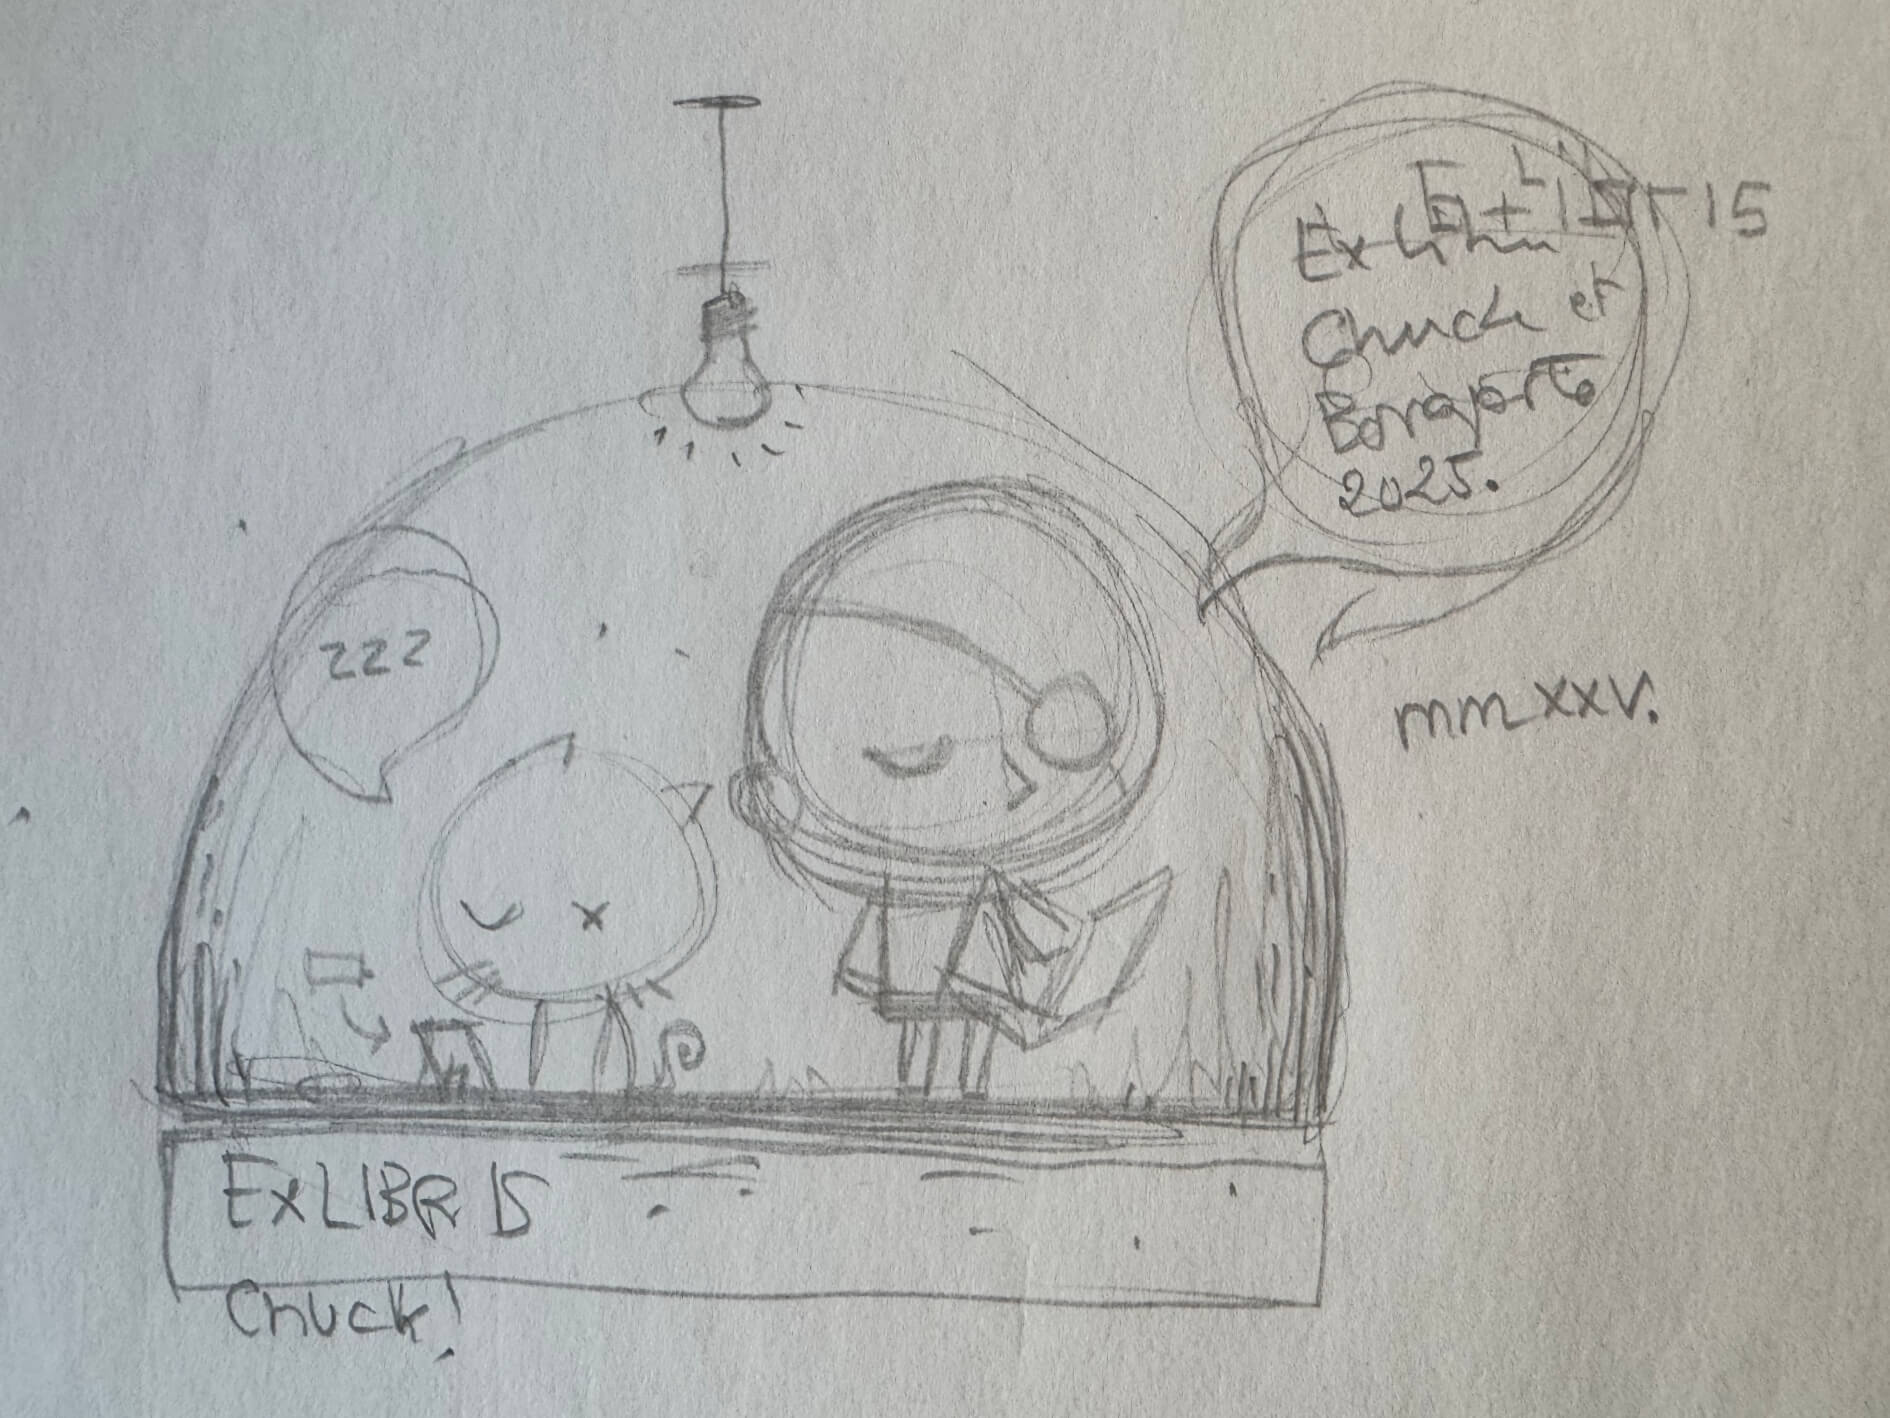 Ex-Libris
Chuck et
Bonaparte
2025.
MMXXV.
zzz
EXLIBRIS
Chuck!